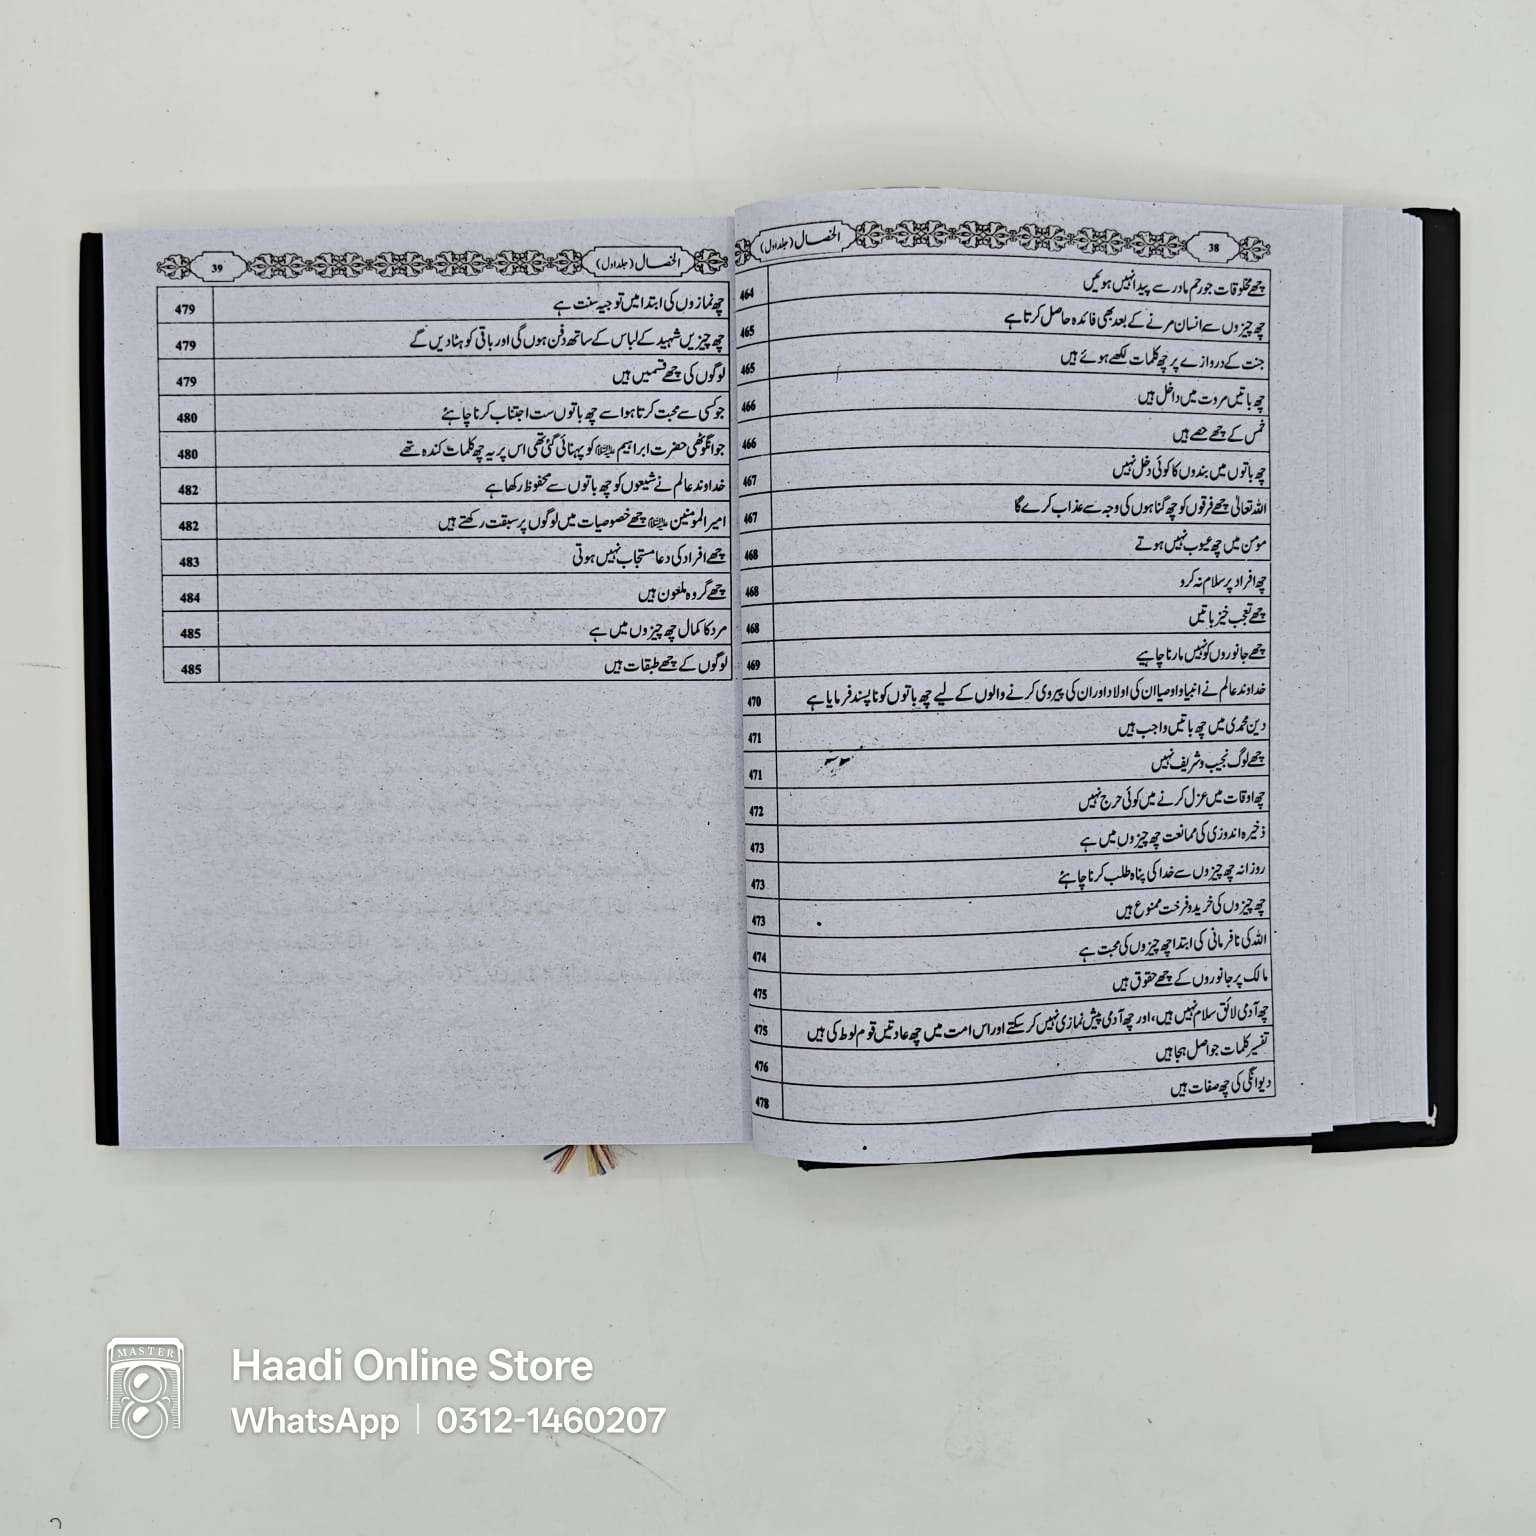 38
الخصال (جلد اول)
چھے مخلوقات جو رحم مادر سے پیدا نہیں ہوئیں 464
چھ چیزوں سے انسان مرنے کے بعد بھی فائدہ حاصل کرتا ہے 465
جنت کے دروازے پر چھ کلمات لکھے ہوئے ہیں 465
چھ باتیں مروت میں داخل ہیں 466
خمس کے چھے حصے ہیں 466
چھ باتوں میں بندوں کا کوئی دخل نہیں 467
اللہ تعالیٰ چھے فرقوں کو چھ گناہوں کی وجہ سے عذاب کرے گا 467
مومن میں چھ عیوب نہیں ہوتے 468
چھ افراد پر سلام نہ کرو 468
چھے تعجب خیز باتیں 468
چھے جانوروں کو نہیں مارنا چاہیے 469
خداوند عالم نے انبیا و اوصیا ان کی اولاد اور ان کی پیروی کرنے والوں کے لیے چھ باتوں کو ناپسند فرمایا ہے 470
دین محمدی میں چھ باتیں واجب ہیں 471
چھے لوگ نجیب و شریف نہیں 471
چھ اوقات میں عزل کرنے میں کوئی حرج نہیں 472
ذخیرہ اندوزی کی ممانعت چھ چیزوں میں ہے 473
روزانہ چھ چیزوں سے خدا کی پناہ طلب کرنا چاہئے 473
چھ چیزوں کی خرید و فرخت ممنوع ہیں 473
اللہ کی نافرمانی کی ابتدا چھ چیزوں کی محبت ہے 474
مالک پر جانوروں کے چھے حقوق ہیں 475
چھ آدمی لائق سلام نہیں ہیں، اور چھ آدمی پیش نمازی نہیں کر سکتے اور اس امت میں چھ عادتیں قوم لوط کی ہیں 475
تفسیر کلمات جو اصل ہجا ہیں 476
دیوانگی کی چھ صفات ہیں 478
الخصال (جلد اول)
39
چھ نمازوں کی ابتدا میں توجیہ سنت ہے 479
چھ چیزیں شہید کے لباس کے ساتھ دفن ہوں گی اور باقی کو ہٹا دیں گے 479
لوگوں کی چھے قسمیں ہیں 479
جو کسی سے محبت کرتا ہو اسے چھ باتوں ست اجتناب کرنا چاہئے 480
جو انگوٹھی حضرت ابراہیم علیہ السلام کو پہنائی گئی تھی اس پر یہ چھ کلمات کندہ تھے 480
خداوند عالم نے شیعوں کو چھ باتوں سے محفوظ رکھا ہے 482
امیر المومنین علیہ السلام چھے خصوصیات میں لوگوں پر سبقت رکھتے ہیں 482
چھے افراد کی دعا مستجاب نہیں ہوتی 483
چھے گروہ ملعون ہیں 484
مرد کا کمال چھ چیزوں میں ہے 485
لوگوں کے چھے طبقات ہیں 485
MASTER
Haadi Online Store
WhatsApp | 0312-1460207